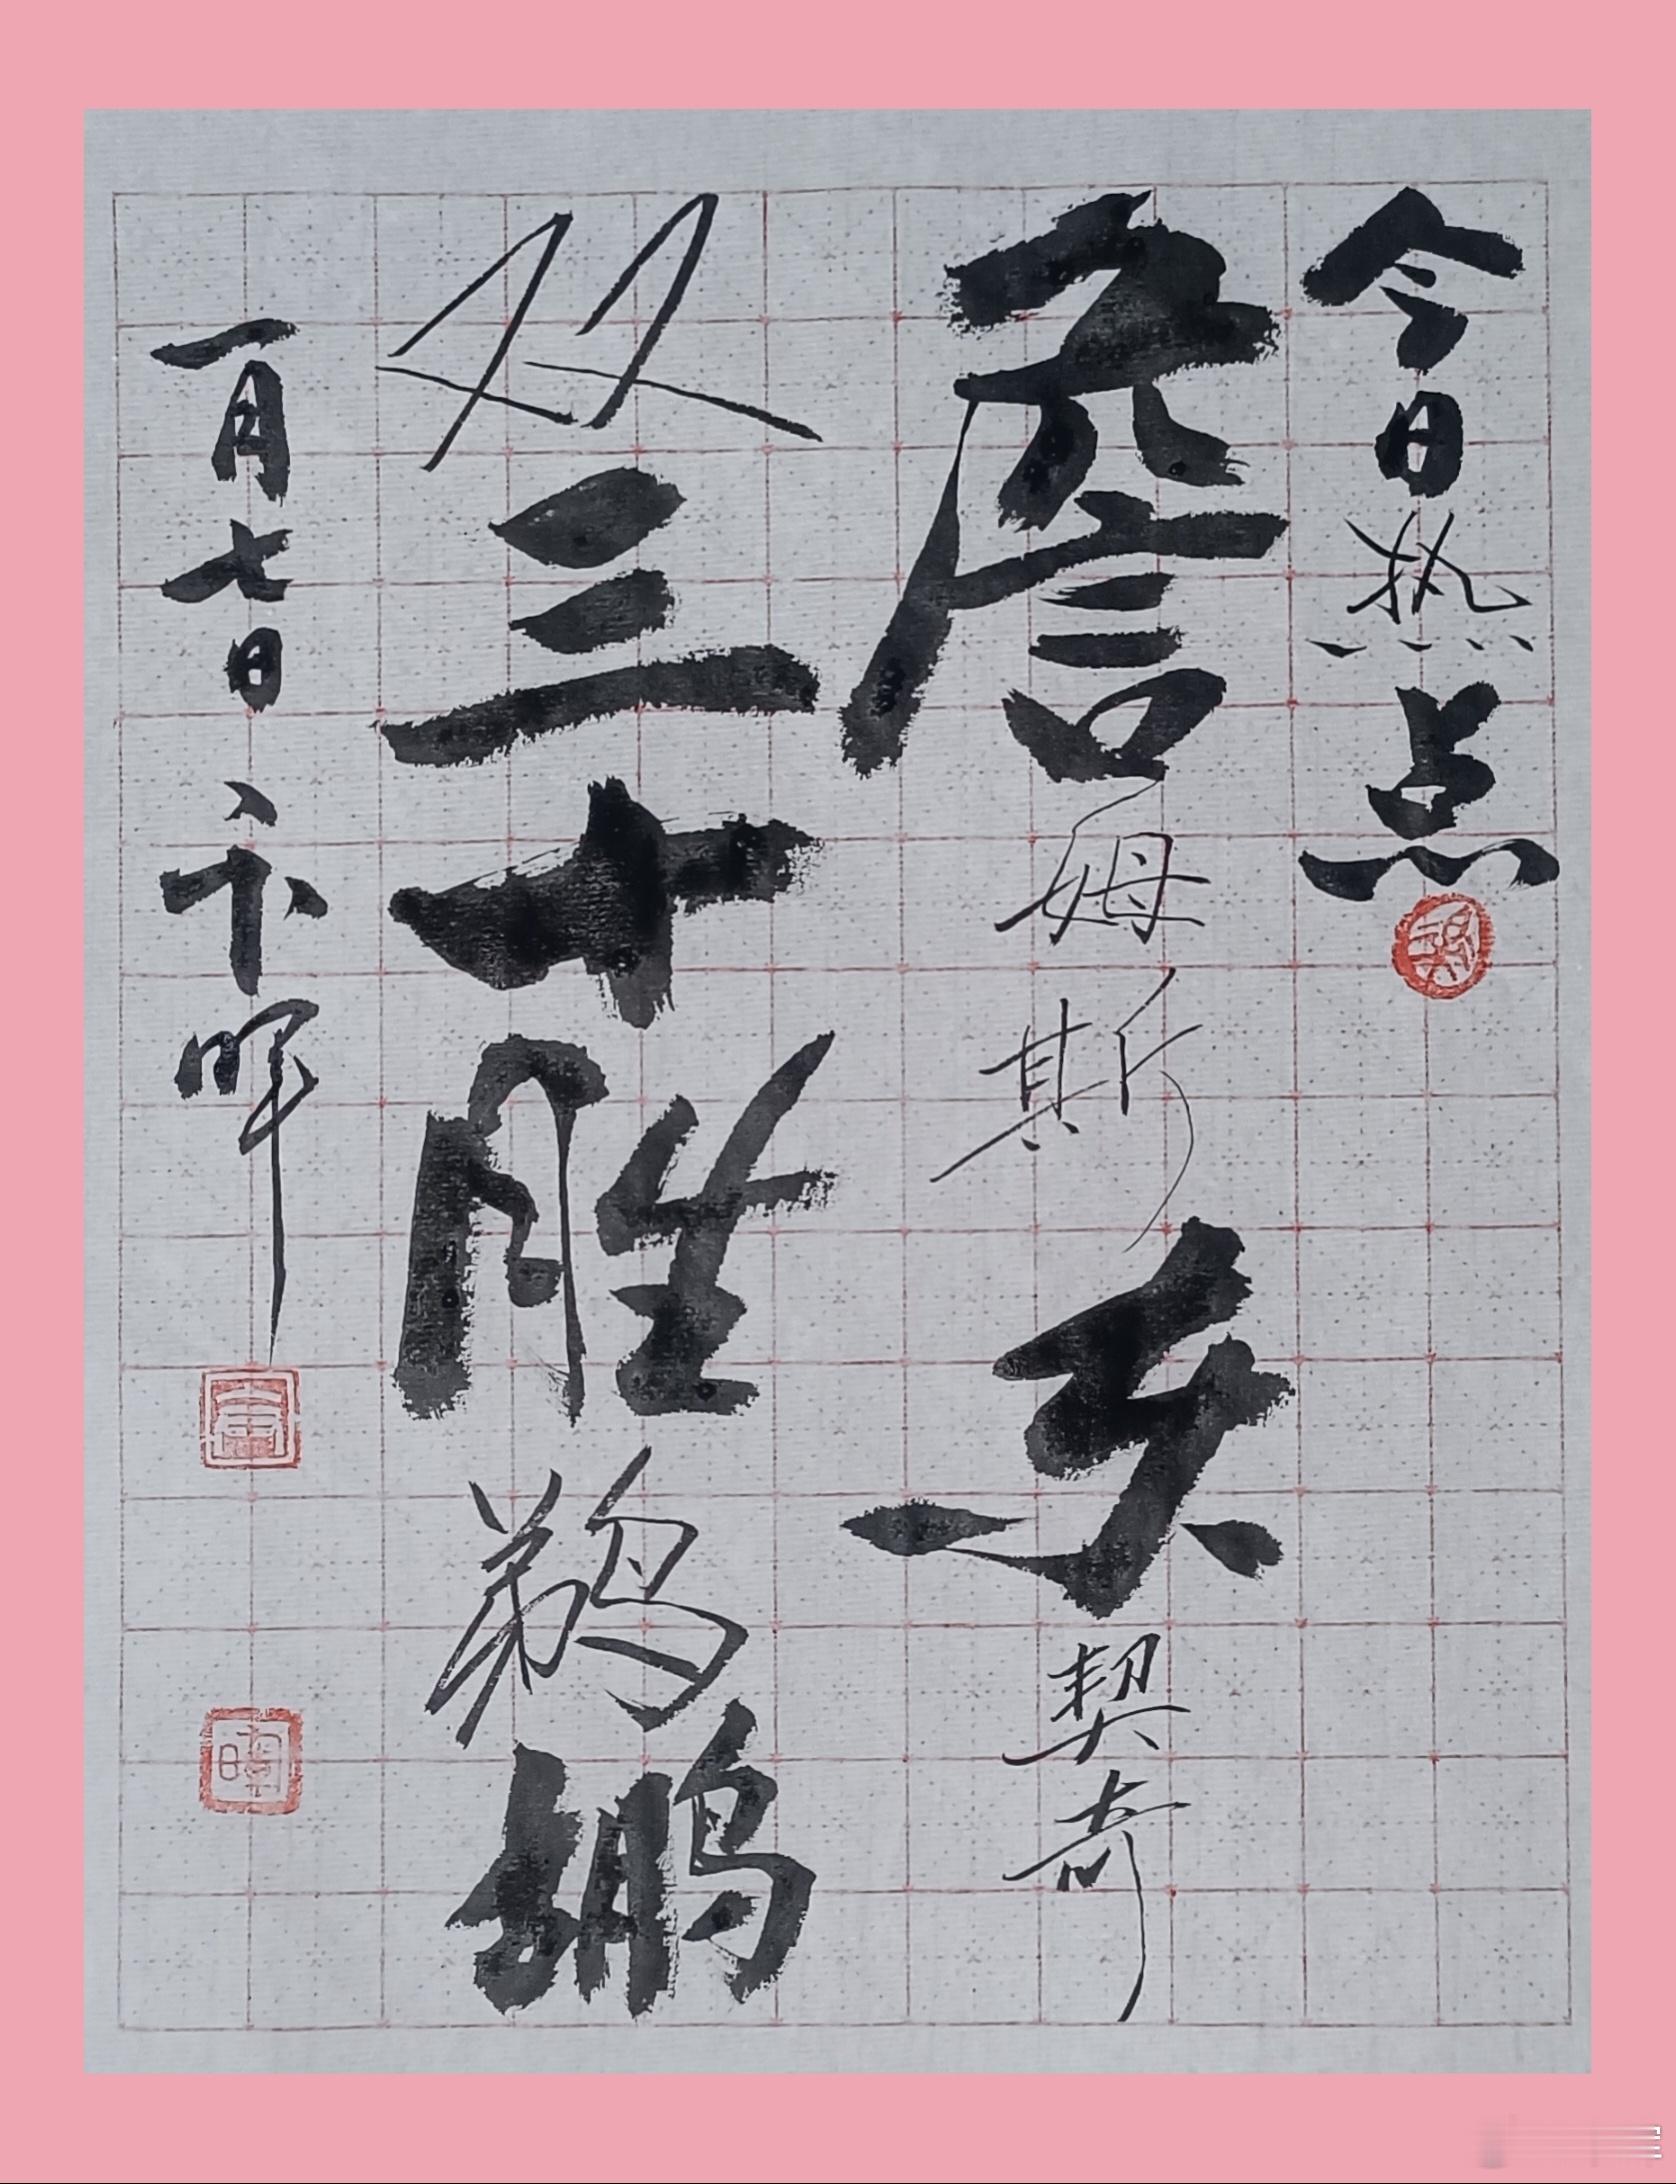 今日热点
詹姆斯东契奇
双三十胜鹈鹕
一月七日卞晖